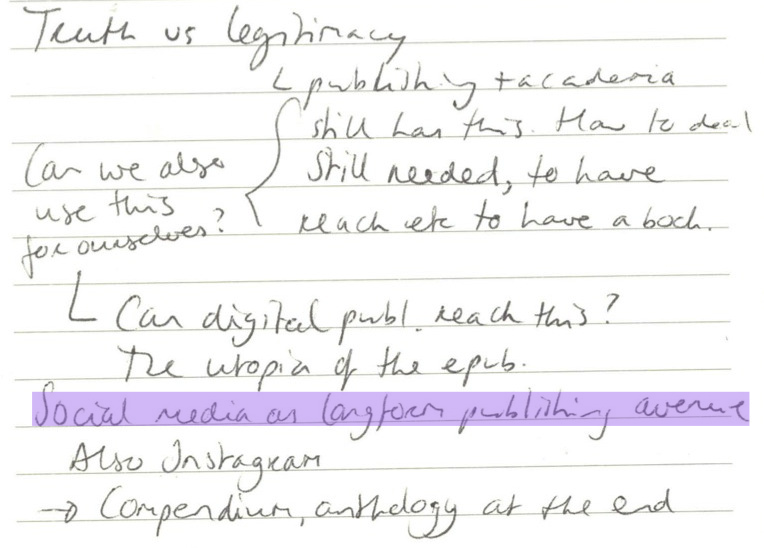 Truth vs legitimacy
└ publishing + academia
still has this. How to deal
Still needed, to have
reach etc to have a book.
Can we also
use this
for ourselves?
└ Can digital publ. reach this?
The utopia of the epub.
Social media as longform publishing avenue
Also Instagram
→ Compendium, anthology at the end